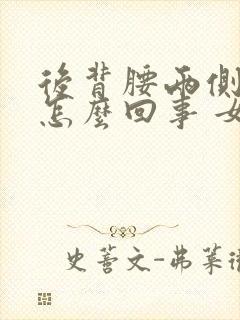 後背腰兩側
怎麼回事 女
史蒂文-弗萊